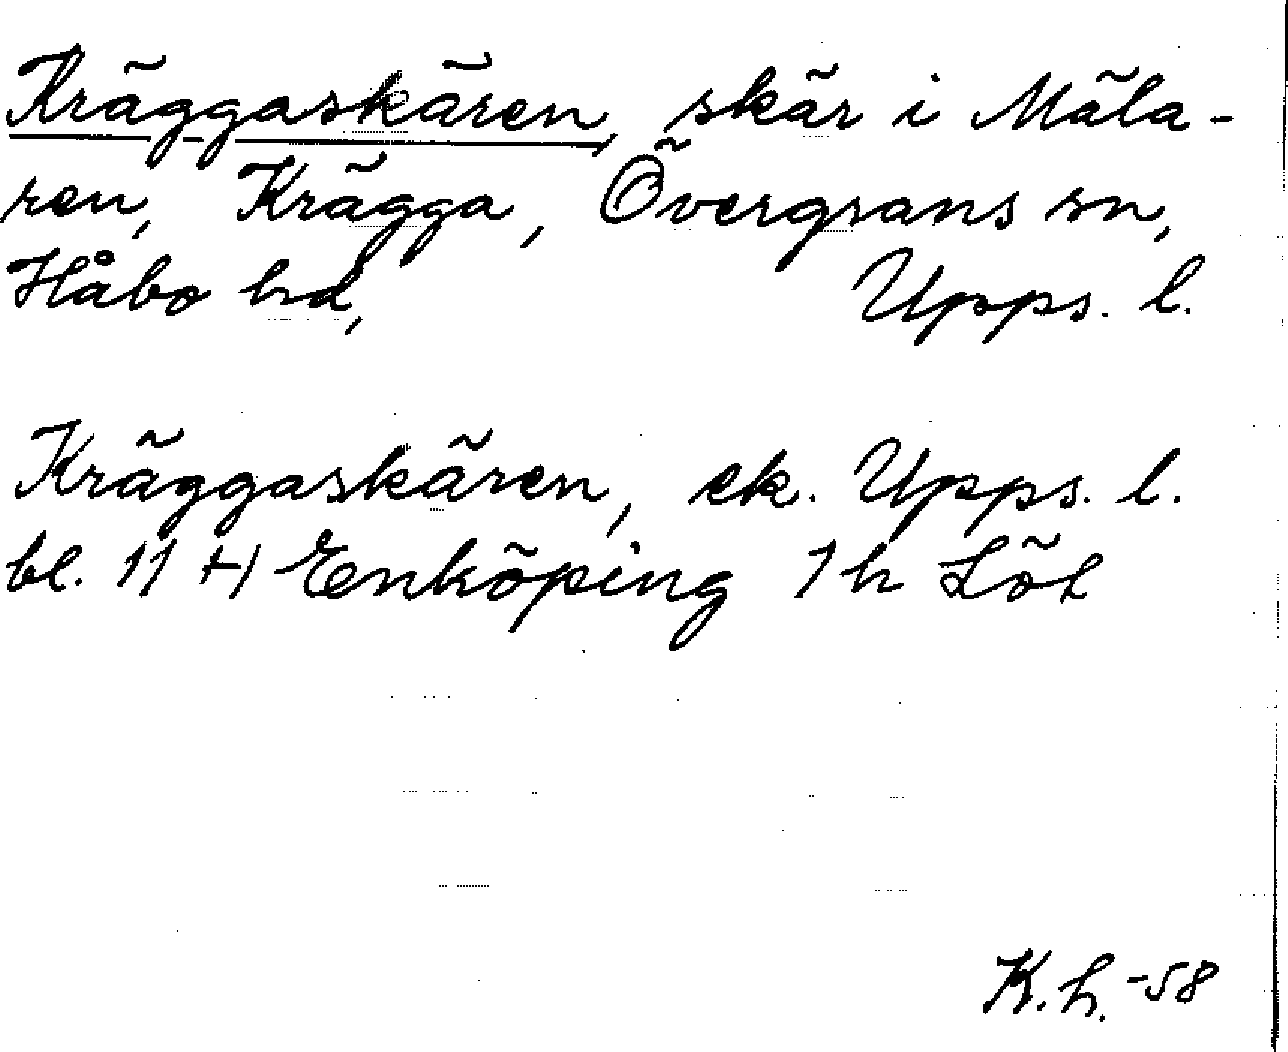 Kräggaskären, skär i Mäla-
ren, Krägga, Övergrans sn,
Håbo hd, Upps. l.
Kräggaskären, ek. Upps. l.
bl. 11 Enköping 1h Löt
K.h. -58